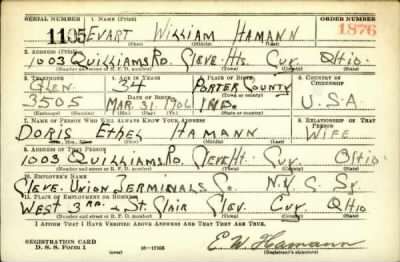 SERIAL NUMBER 1. NAME (Print) ORDER NUMBER
1105 EVART WILLIAM HAMANN 1876
(First) (Middle) (Last)
2. ADDRESS (Print)
1003 QUILLIAMS RD. CLEVE. HTS. CUY. OHIO.
(Number and street or R. F. D. number) (Town) (County) (State)
3. TELEPHONE 4. AGE IN YEARS 5. PLACE OF BIRTH 6. COUNTRY OF CITIZENSHIP
GLEN. 34 PORTER COUNTY
DATE OF BIRTH (Town or county)
3505 MAR. 31. 1906 IND. U.S.A.
(Exchange) (Number) (Mo.) (Day) (Yr.) (State or country)
7. NAME OF PERSON WHO WILL ALWAYS KNOW YOUR ADDRESS 8. RELATIONSHIP OF THAT PERSON
DORIS ETHEL HAMANN WIFE
(Mr., Mrs., Miss) (First) (Middle) (Last)
9. ADDRESS OF THAT PERSON
1003 QUILLIAMS RD. CLEVE. HT. CUY. OHIO
(Number and street or R. F. D. number) (Town) (County) (State)
10. EMPLOYER'S NAME
CLEVE. UNION TERMINALS CO. N.Y.C. SY.
11. PLACE OF EMPLOYMENT OR BUSINESS
WEST 3RD. & ST. CLAIR CLEV. CUY. OHIO
(Number and street or R. F. D. number) (Town) (County) (State)
I AFFIRM THAT I HAVE VERIFIED ABOVE ANSWERS AND THAT THEY ARE TRUE.
REGISTRATION CARD E. W. Hamann
D. S. S. Form 1 16—17105 (Registrant's signature)